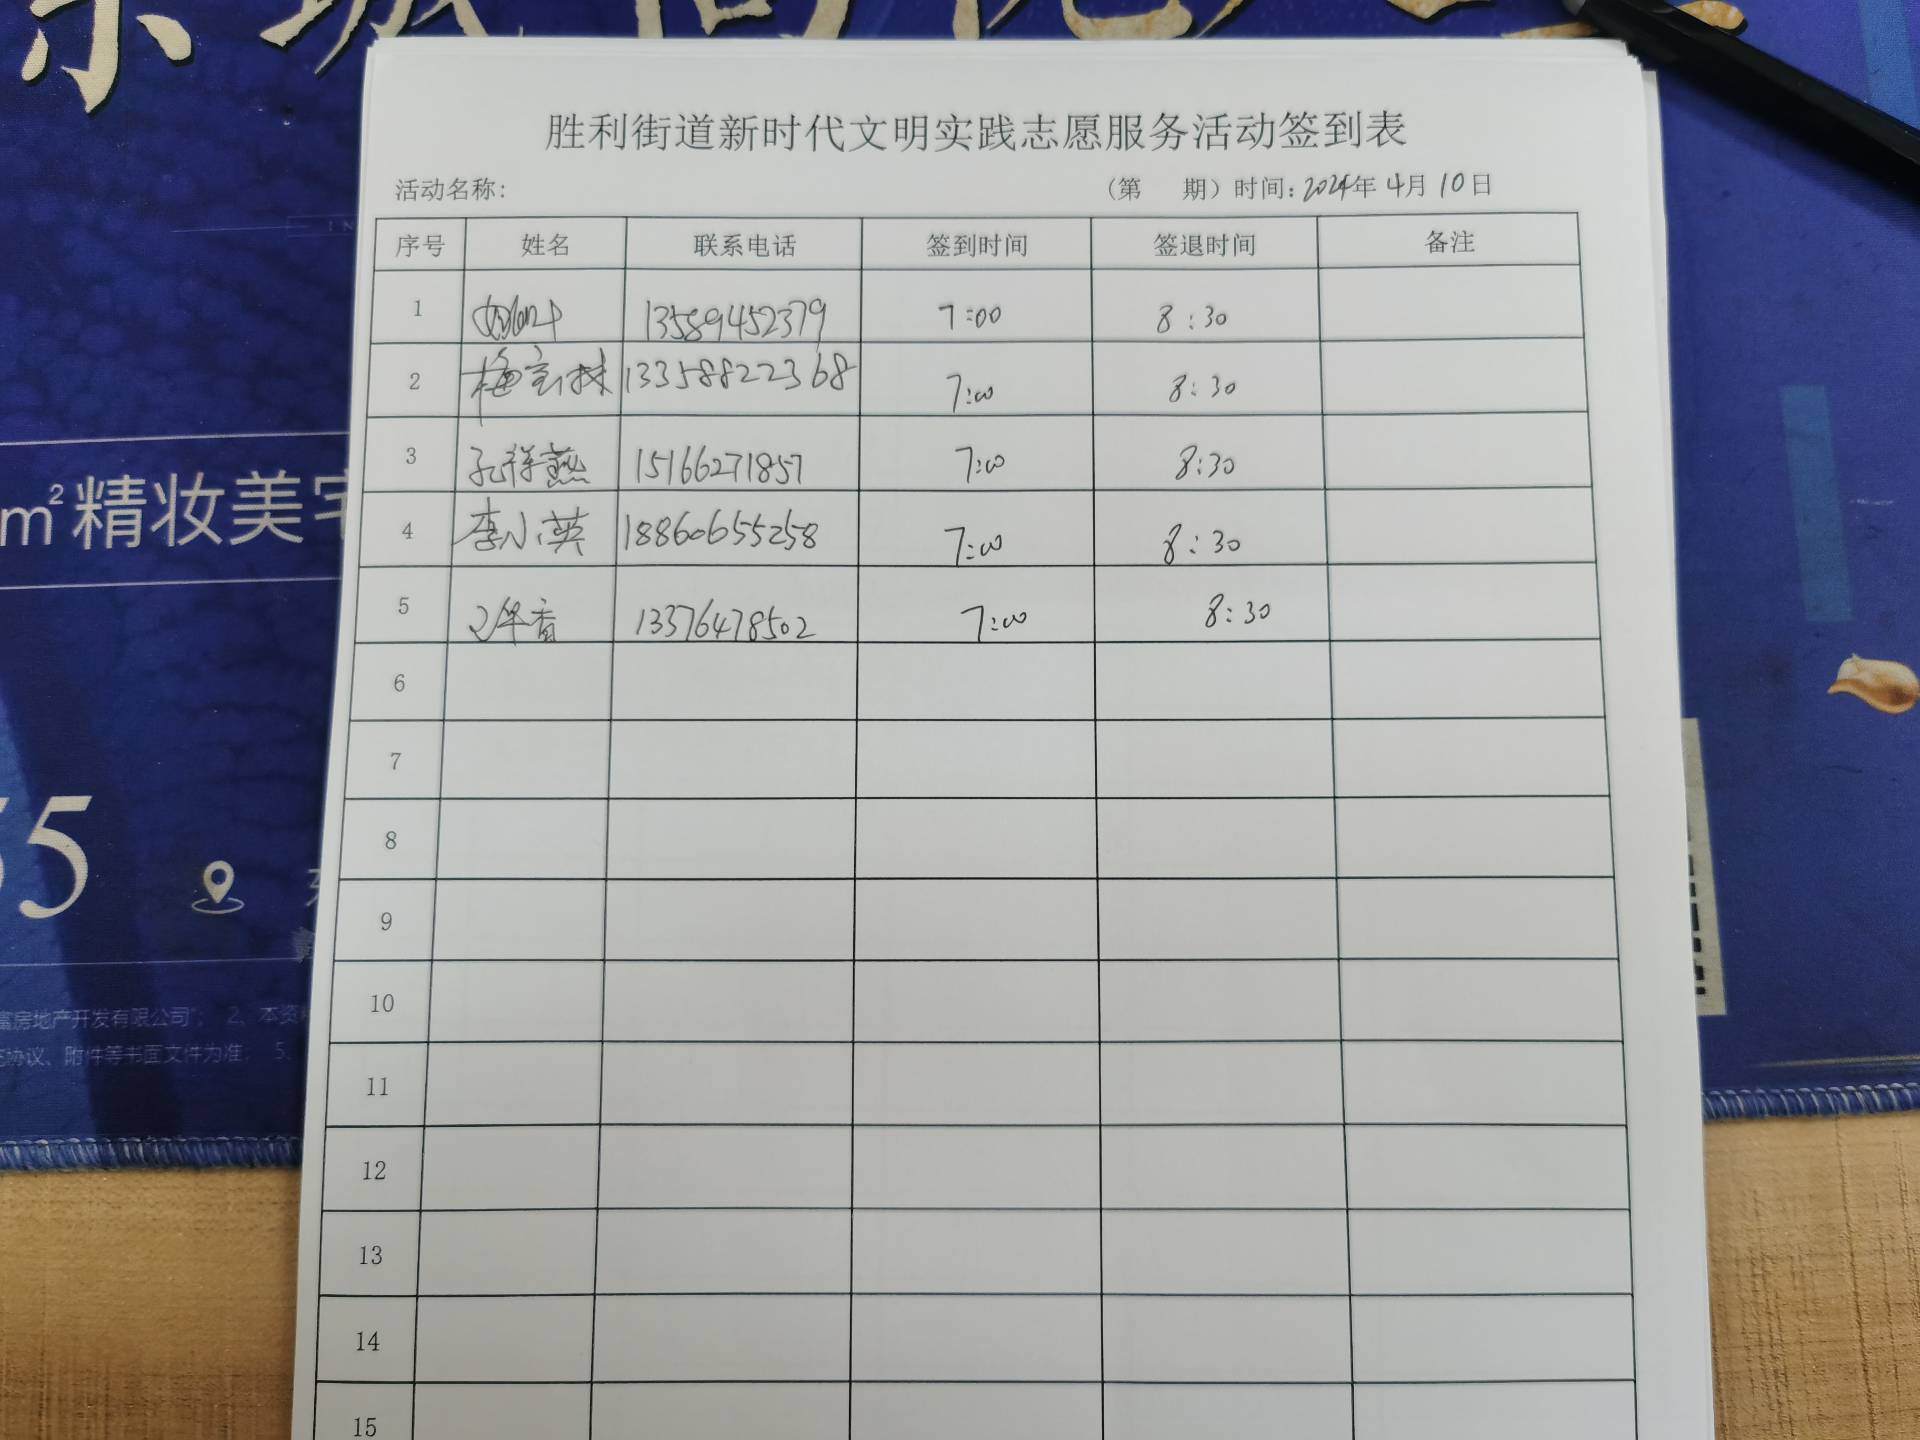 胜利街道新时代文明实践志愿服务活动签到表
活动名称: (第 期) 时间: 2024年 4月 10日
序号 姓名 联系电话 签到时间 签退时间 备注
1 13589452379 7:00 8:30
2 梅宝林 13358822368 7:00 8:30
3 孔祥燕 15166271857 7:00 8:30
4 李小英 18860655258 7:00 8:30
5 13376478502 7:00 8:30
6
7
8
9
10
11
12
13
14
15
m²精妆美宅
55
房地产开发有限公司; 2、本资
协议、附件等书面文件为准; 5、